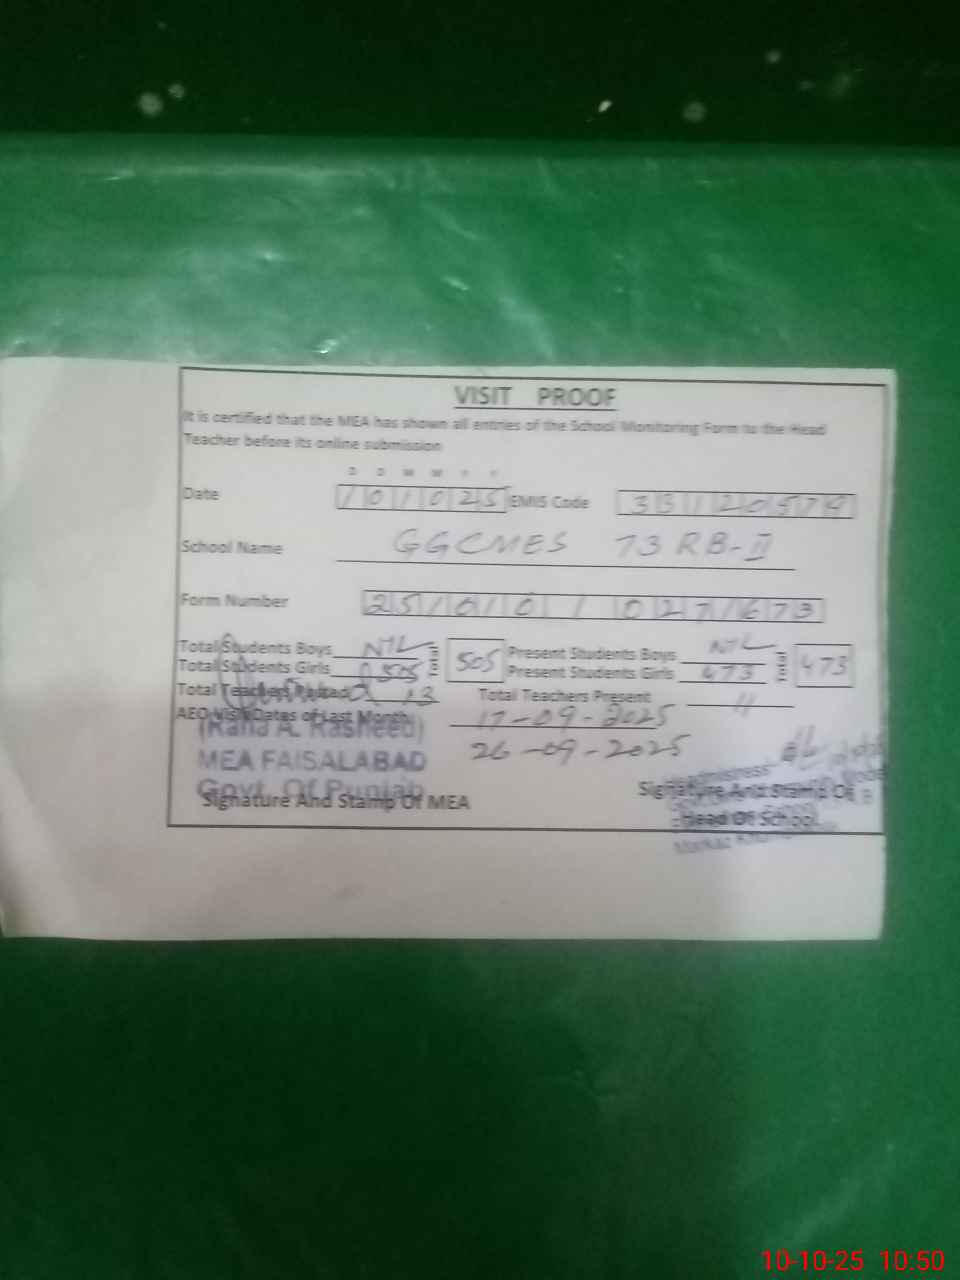 VISIT PROOF
It is certified that the MEA has shown all entries of the School Monitoring Form to the Head
Teacher before its online submission
D D M M Y Y
Date 101025 EMIS Code 33120574
School Name GGCMES 73 RB-II
Form Number 25/010/027/673
Total Students Boys NIL 505 Present Students Boys NIL 473
Total Students Girls 505 Present Students Girls 473
Total Teachers 13 Total Teachers Present 11
AEO Visit Dates of Last Month 17-09-2025
(Rana A. Rasheed) 26-09-2025
MEA FAISALABAD
Govt. Of Punjab
Signature And Stamp Of MEA Signature And Stamp Of
Head Of School
10-10-25 10:50